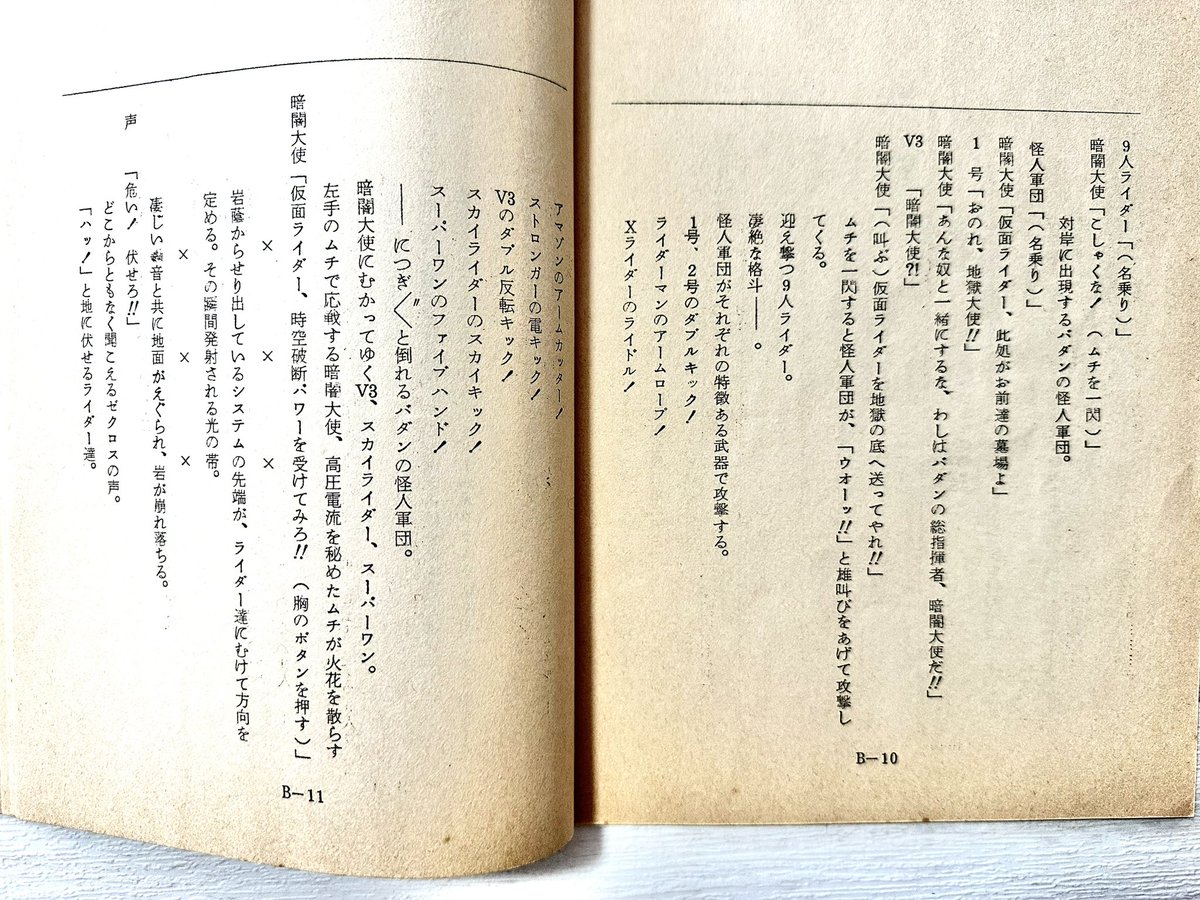 9人ライダー「（名乗り）」
暗闇大使「こしゃくな！（ムチを一閃）」
対岸に出現するバダンの怪人軍団。
怪人軍団「（名乗り）」
暗闇大使「仮面ライダー、此処がお前達の墓場よ」
1号「おのれ、地獄大使!!」
暗闇大使「あんな奴と一緒にするな、わしはバダンの総指揮者、暗闇大使だ!!」
V3「暗闇大使?!」
暗闇大使「（叫ぶ）仮面ライダーを地獄の底へ送ってやれ!!」
ムチを一閃すると怪人軍団が、「ウオーッ!!」と雄叫びをあげて攻撃し
てくる。
迎え撃つ9人ライダー。
凄絶な格斗――。
怪人軍団がそれぞれの特徴ある武器で攻撃する。
1号、2号のダブルキック！
ライダーマンのアームロープ！
Xライダーのライドル！
B―10
アマゾンのアームカッター！
ストロンガーの電キック！
V3のダブル反転キック！
スカイライダーのスカイキック！
スーパーワンのファイブハンド！
――につぎ〳〵と倒れるバダンの怪人軍団。
暗闇大使にむかってゆくV3、スカイライダー、スーパーワン。
左手のムチで応戦する暗闇大使、高圧電流を秘めたムチが火花を散らす
暗闇大使「仮面ライダー、時空破断パワーを受けてみろ!!（胸のボタンを押す）」
× × ×
岩蔭からせり出しているシステムの先端が、ライダー達にむけて方向を
定める。その瞬間発射される光の帯。
× × ×
凄じい轟音と共に地面がえぐられ、岩が崩れ落ちる。
声「危い！伏せろ!!」
どこからともなく聞こえるゼクロスの声。
「ハッ！」と地に伏せるライダー達。
B―11